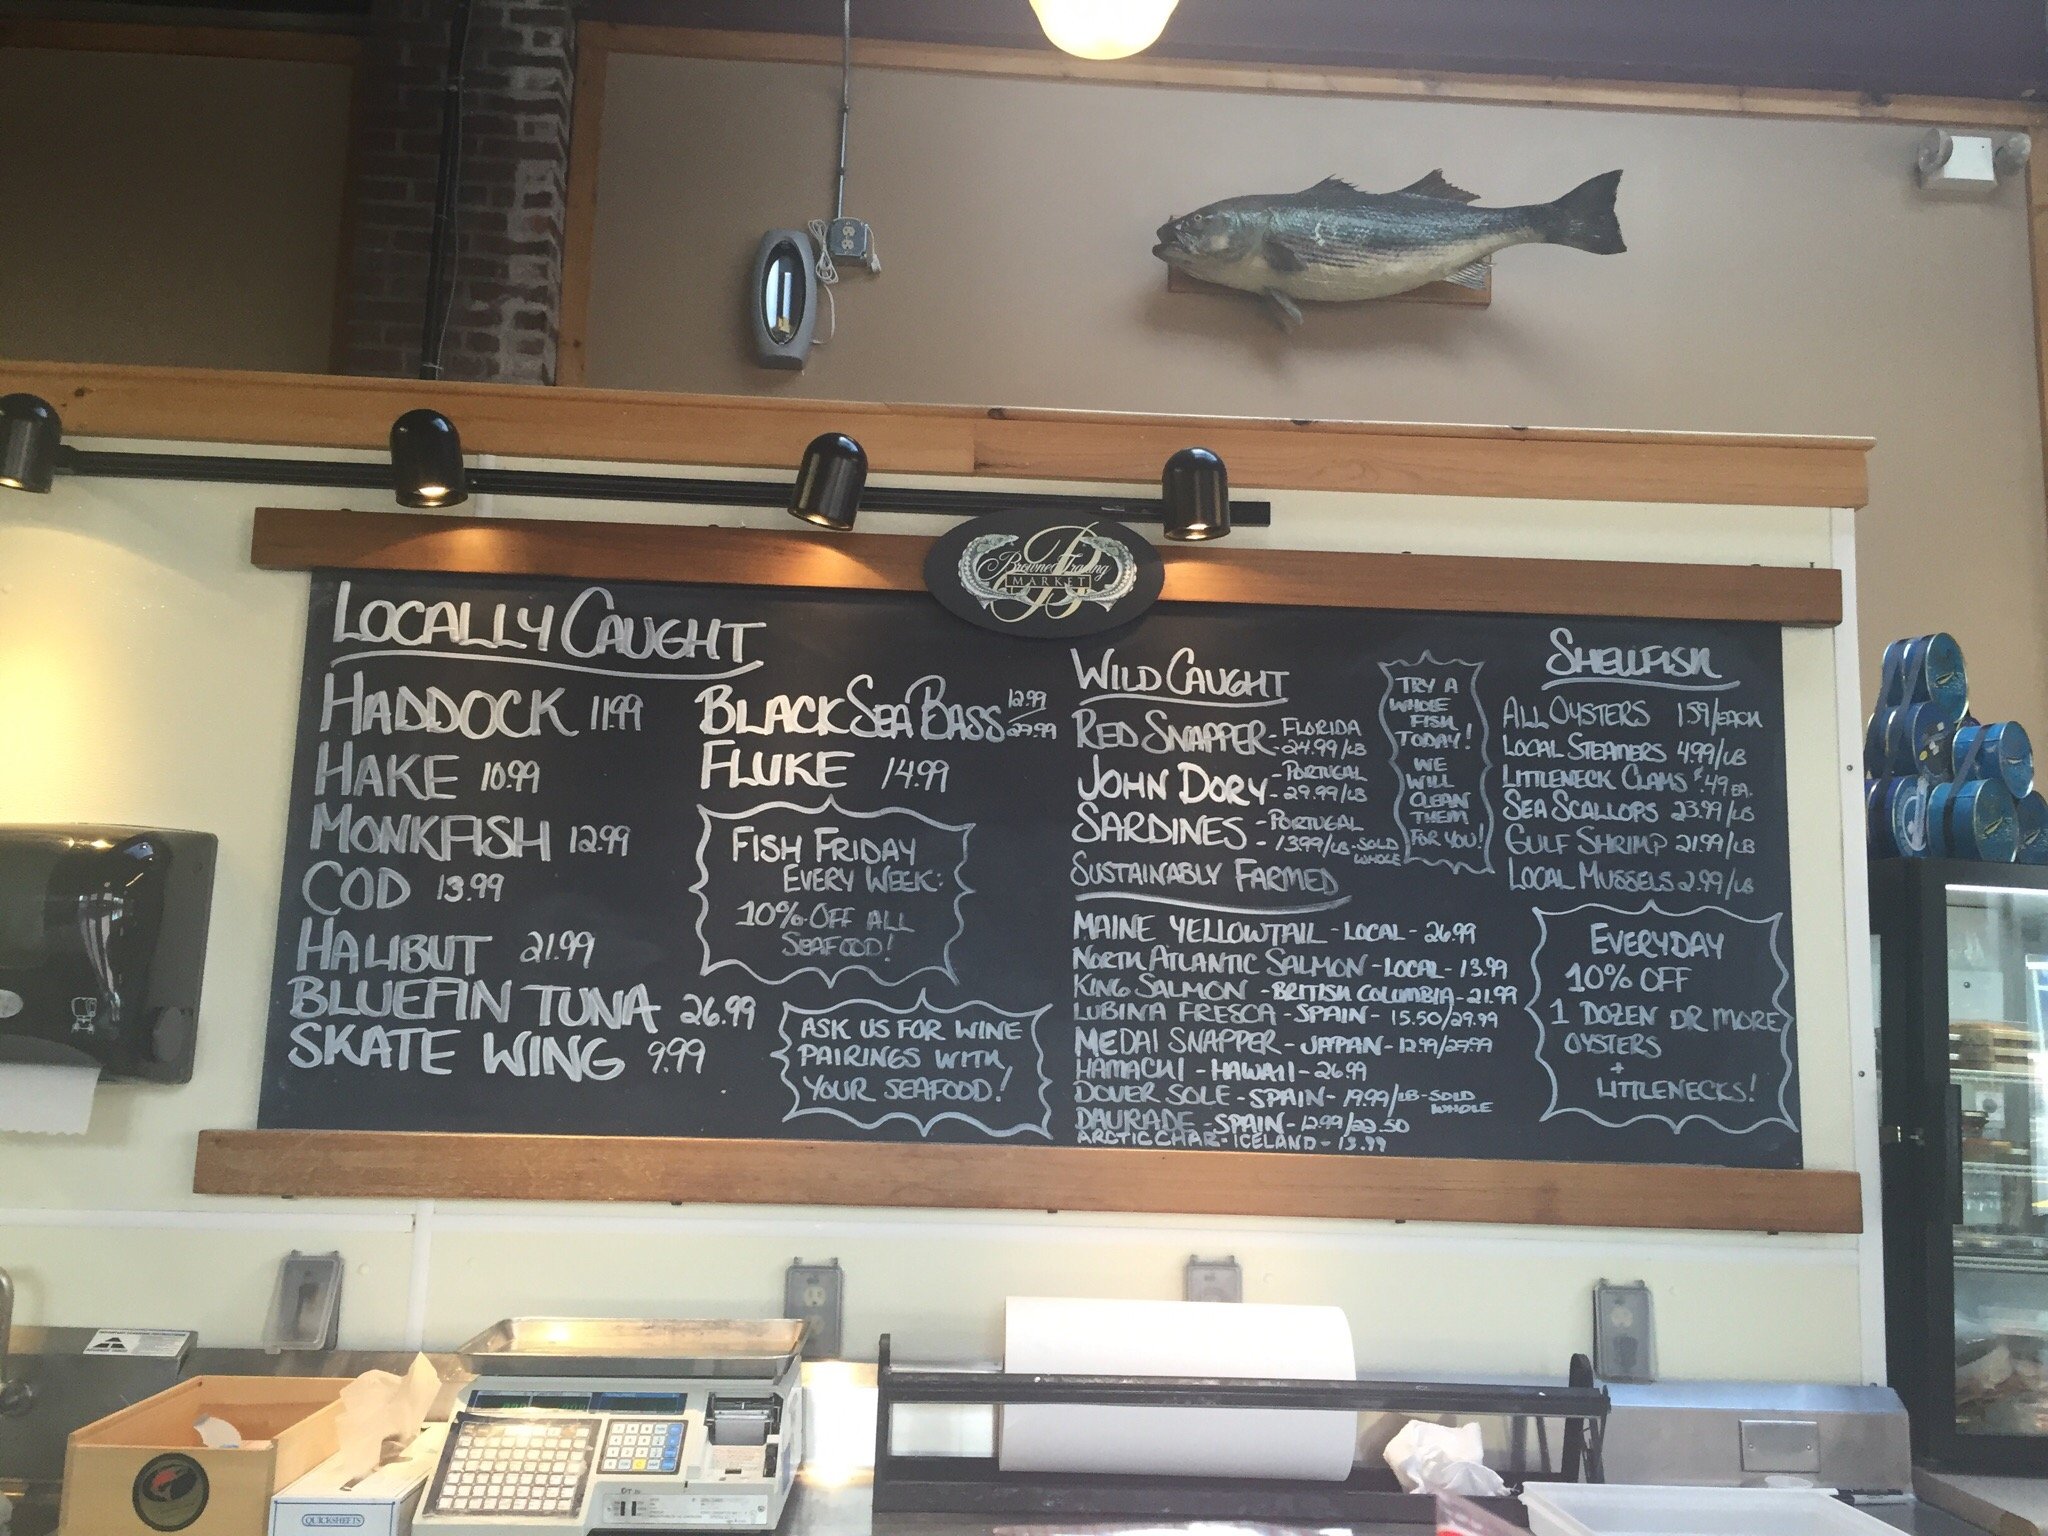 Browne Trading
MARKET
LOCALLY CAUGHT
HADDOCK 11.99
HAKE 10.99
MONKFISH 12.99
COD 13.99
HALIBUT 21.99
BLUEFIN TUNA 26.99
SKATE WING 9.99
BLACK SEA BASS 12.99/29.99
FLUKE 14.99
FISH FRIDAY
EVERY WEEK:
10% OFF ALL
SEAFOOD!
ASK US FOR WINE
PAIRINGS WITH
YOUR SEAFOOD!
WILD CAUGHT
RED SNAPPER - FLORIDA
- 24.99/LB
JOHN DORY - PORTUGAL
- 29.99/LB
SARDINES - PORTUGAL
- 13.99/LB - SOLD
WHOLE
SUSTAINABLY FARMED
MAINE YELLOWTAIL - LOCAL - 26.99
NORTH ATLANTIC SALMON - LOCAL - 13.99
KING SALMON - BRITISH COLUMBIA - 21.99
LUBINA FRESCA - SPAIN - 15.50/29.99
MEDAI SNAPPER - JAPAN - 12.99/29.99
HAMACHI - HAWAII - 26.99
DOVER SOLE - SPAIN - 19.99/LB - SOLD
WHOLE
DAURADE - SPAIN - 12.99/22.50
ARCTIC CHAR - ICELAND - 13.99
TRY A
WHOLE
FISH
TODAY!
WE
WILL
CLEAN
THEM
FOR YOU!
SHELLFISH
ALL OYSTERS 1.59/EACH
LOCAL STEAMERS 4.99/LB
LITTLENECK CLAMS $.49 EA.
SEA SCALLOPS 23.99/LB
GULF SHRIMP 21.99/LB
LOCAL MUSSELS 2.99/LB
EVERYDAY
10% OFF
1 DOZEN OR MORE
OYSTERS
+
LITTLENECKS!
QUICKSHEETS